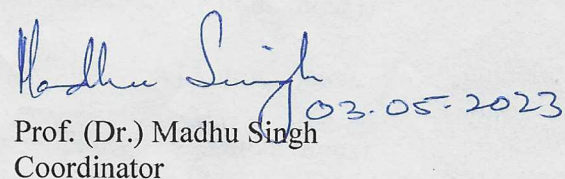 Madhu Singh
03.05.2023
Prof. (Dr.) Madhu Singh
Coordinator